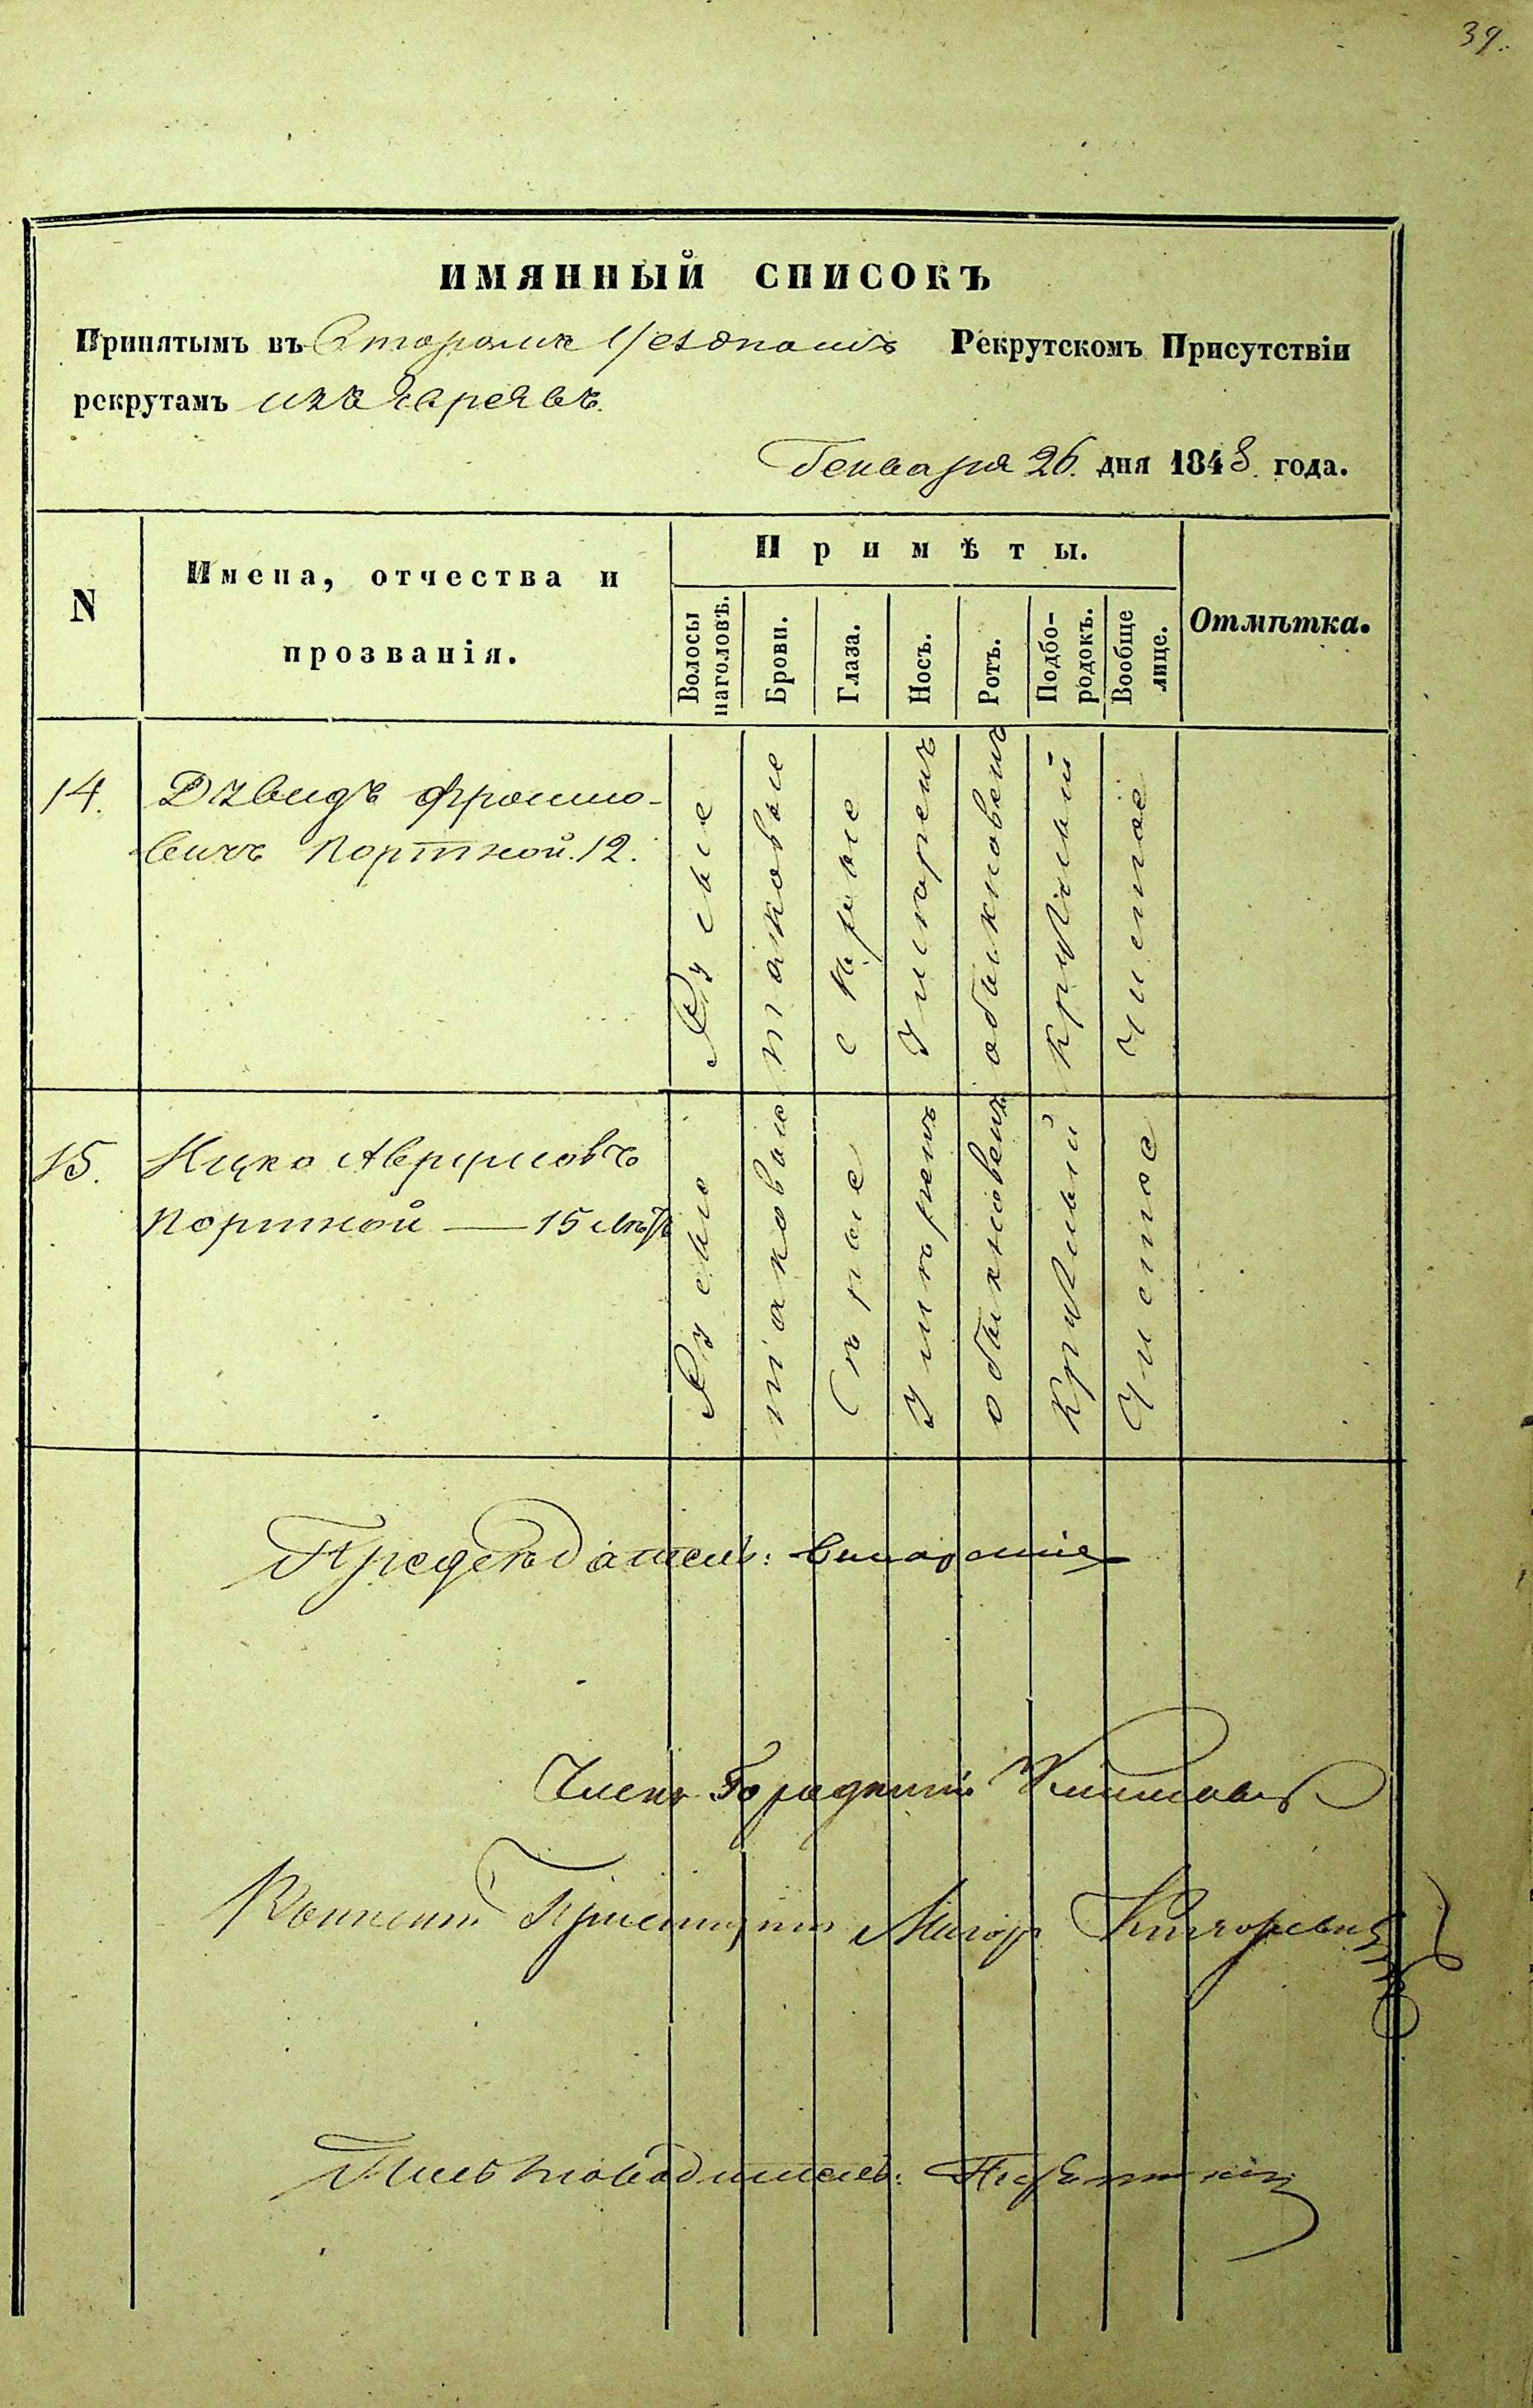 39.
ИМЯННЫЙ СПИСОКЪ
Принятымъ въ Второмъ Уездномъ Рекрутскомъ Присутствіи
рекрутамъ изъ Евреевъ.
Генваря 26. дня 1848. года.
N
Имена, отчества и
прозванія.
Примѣты.
Волосы
наголовѣ.
Брови.
Глаза.
Носъ.
Ротъ.
Подбо-
родокъ.
Вообще
лице.
Отмѣтка.
14.
Дávидъ Фроимо-
вичъ Портной. 12.
Русые
таковые
серые
Умѣренъ
обыкновенъ
Круглый
Чистое
15.
Ицко Аврумовъ
Портной — 15 лѣтъ
Русые
таковые
Серые
Умѣренъ
обыкновенъ
Круглый
Чистое
Предсѣдатель:
Членъ Городничій
Воинскій Пріемщикъ Маіоръ
Письмоводитель: